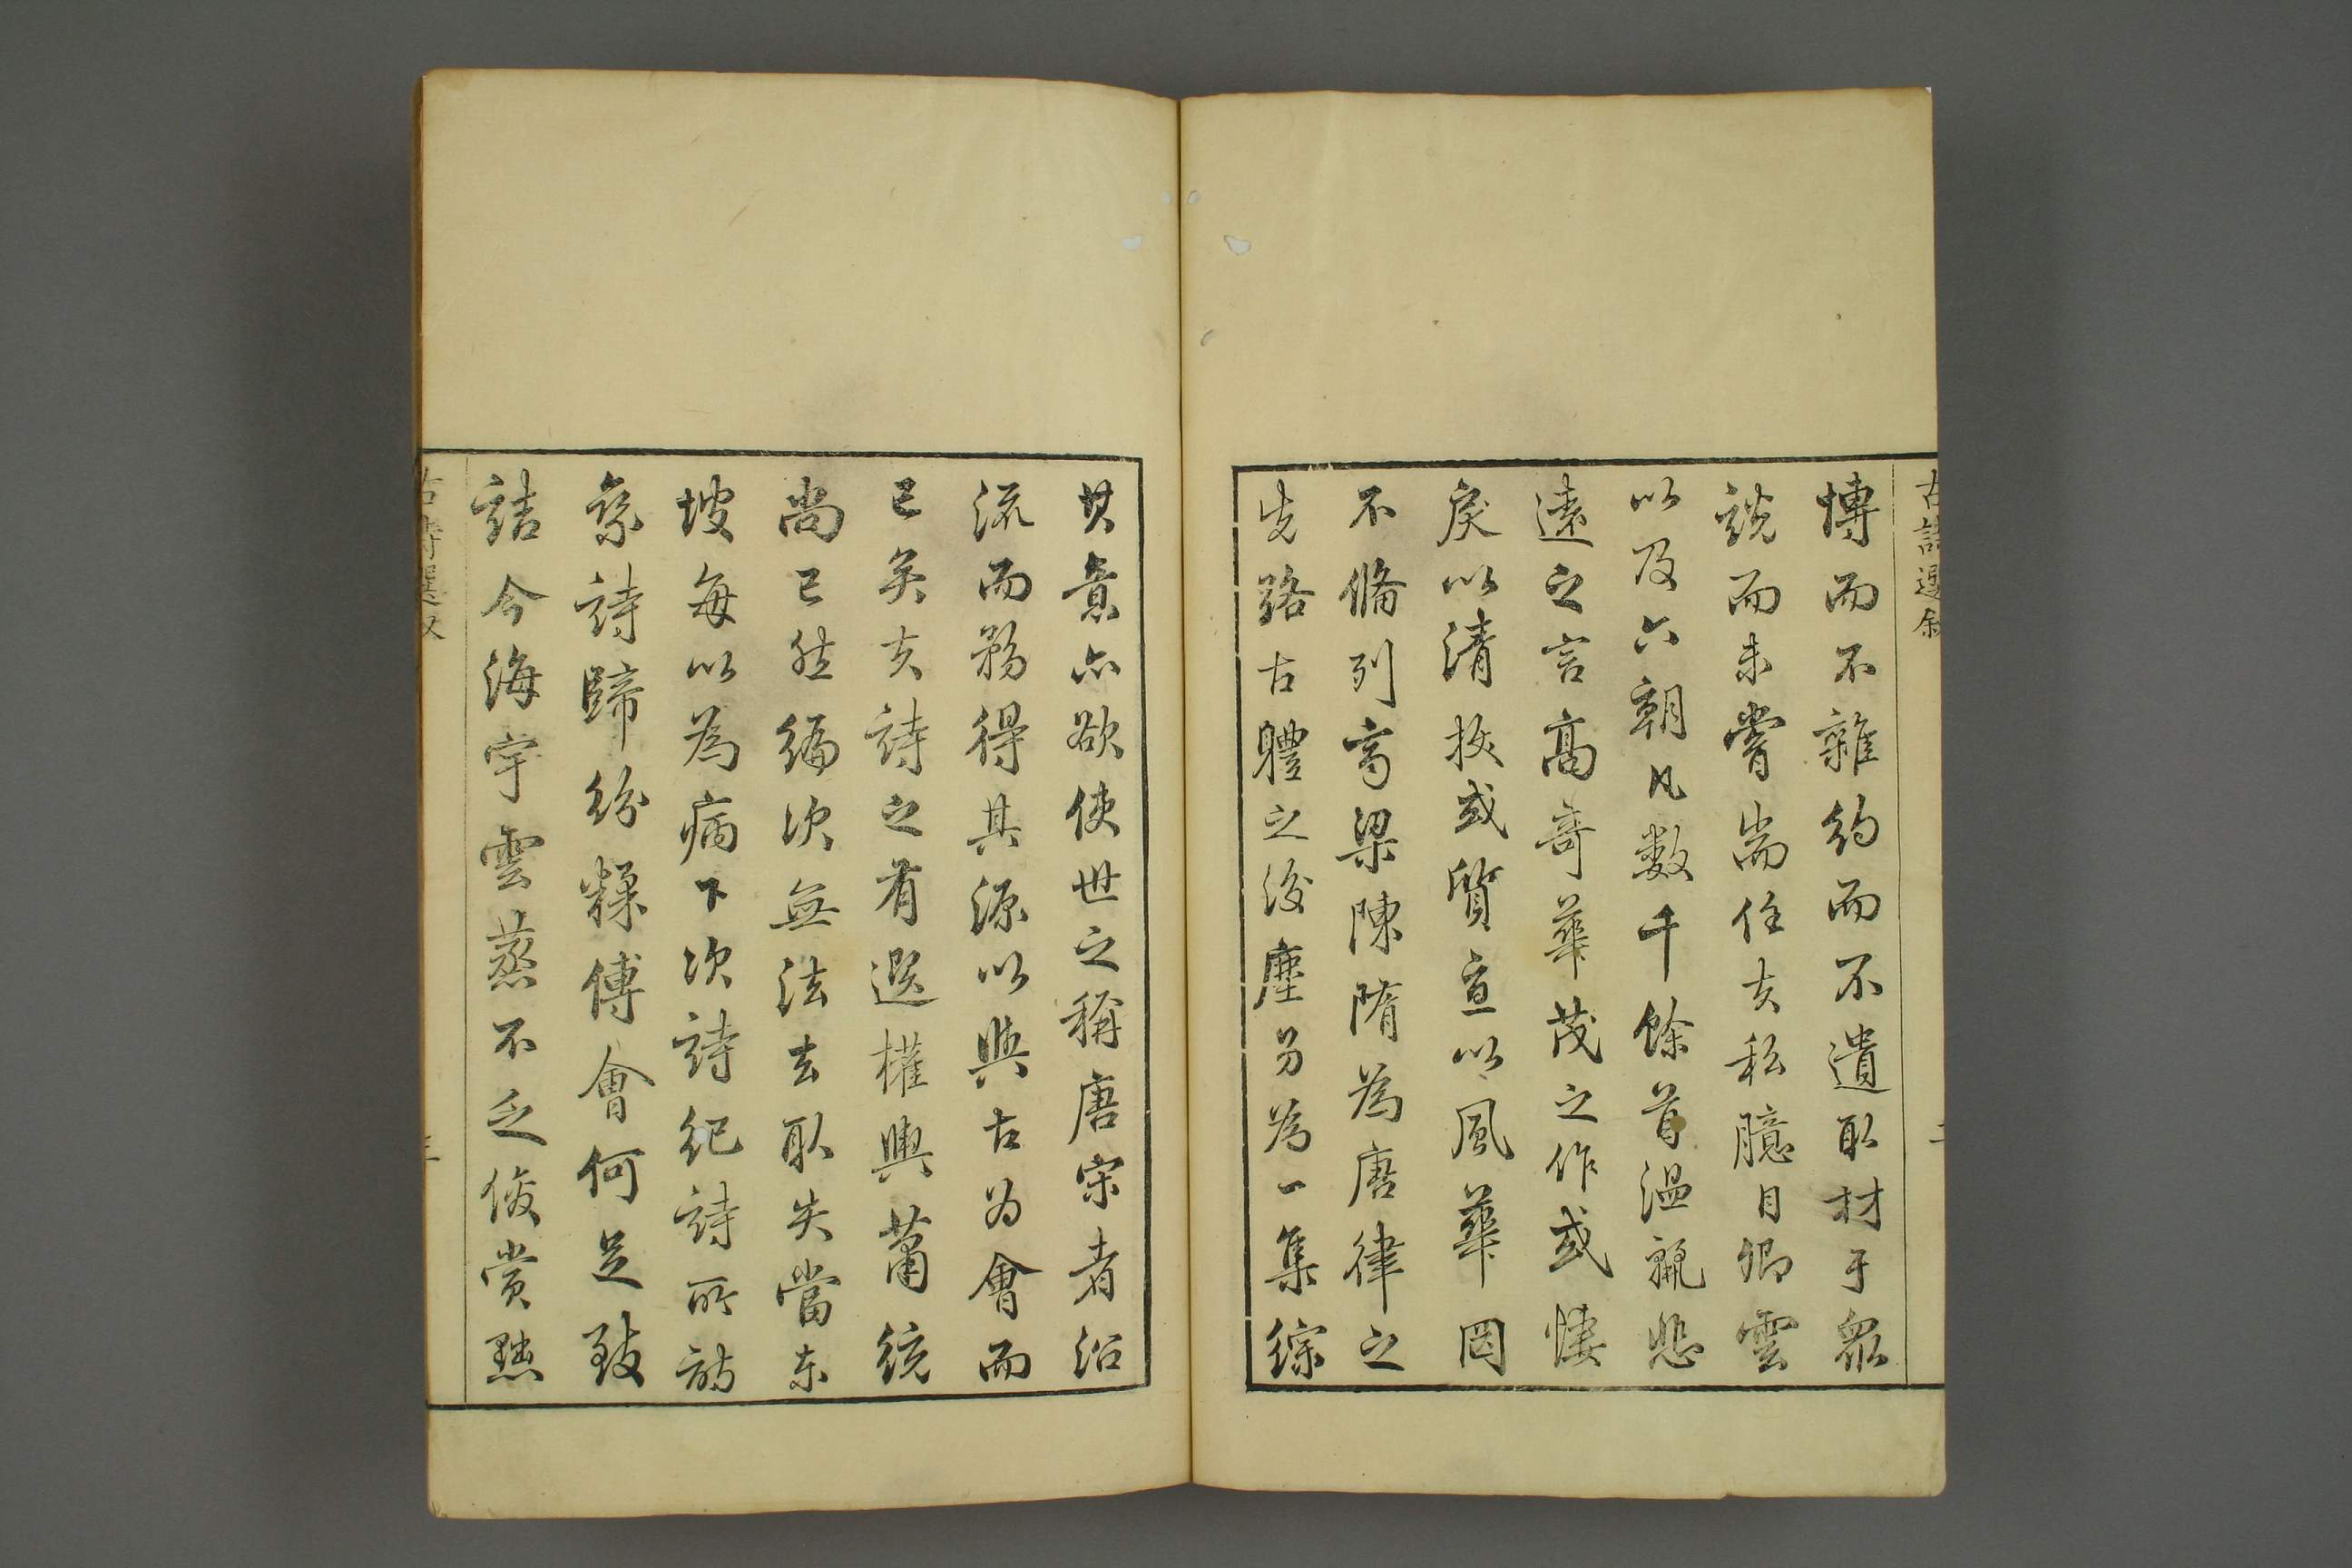 古詩選叙
二
慱而不雜約而不遺取材于衆
説而未嘗耑任夫私臆自卿雲
以及六朝凡數千餘首温麗悲
遠之言高奇華茂之作或悽
戾以清拔或質直以風華罔
不備列齊梁陳隋為唐律之
先路古體之後塵另為一集綜
其意亦欲使世之稱唐宋者沿
流而務得其源以與古為會而
已矣夫詩之有選權輿蕭統
尚已然編次無法去取失當東
坡每以為病下次詩紀詩所訪
系詩歸紛糅傅會何足致
詰今海宇雲蒸不乏俊賞㸃
古詩選叙
三